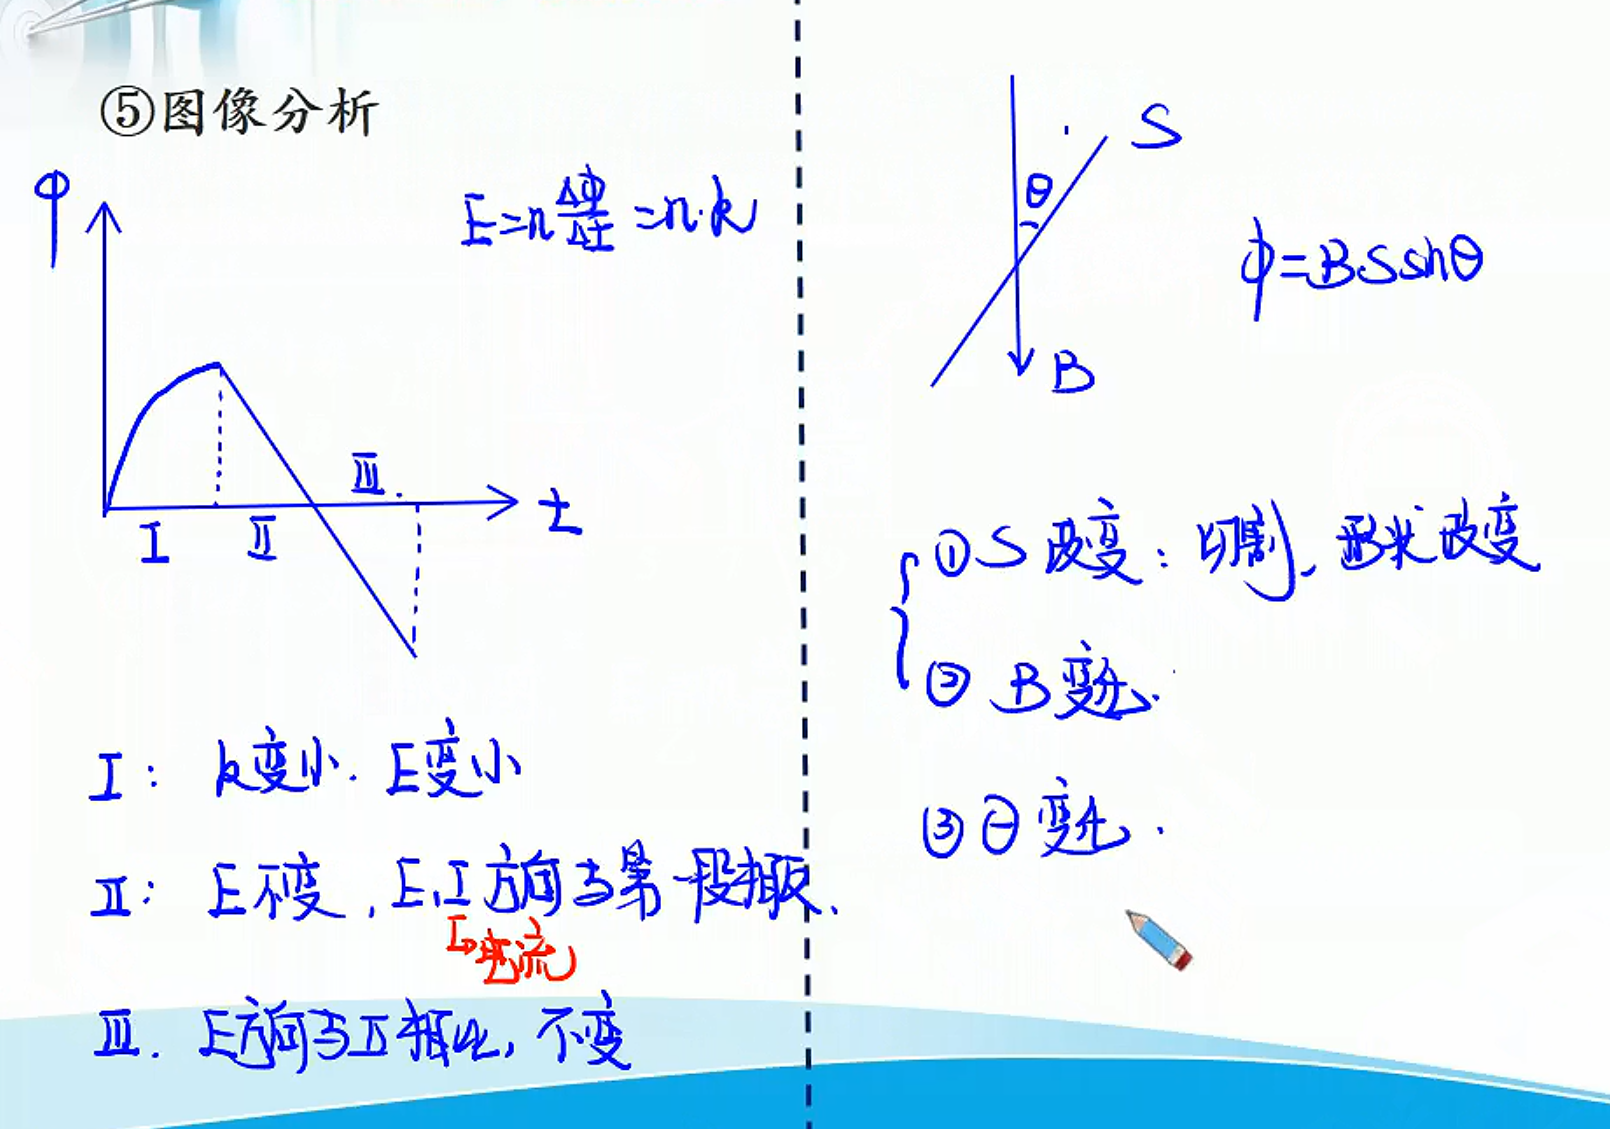 ⑤图像分析
φ
E=n ΔΦ/Δt =n·k
Ⅲ
t
Ⅰ
Ⅱ
Ⅰ: k变小. E变小
Ⅱ: E不变, E、I方向与第一段相反.
I→电流
Ⅲ. E方向与Ⅱ相比, 不变
S
θ
φ=BSsinθ
B
①S改变: 切割、形状改变
②B变化.
③θ变化.